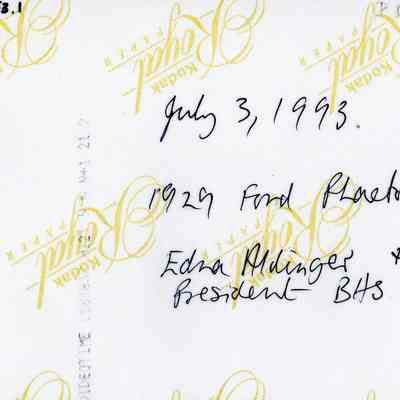 3.1
July 3, 1993.
1929 Ford Phaeto
Edna Aldinger
President BHS
Kodak
Royal
PAPER
Kodak
Royal
PAPER
Kodak
Royal
PAPER
Kodak
Royal
PAPER